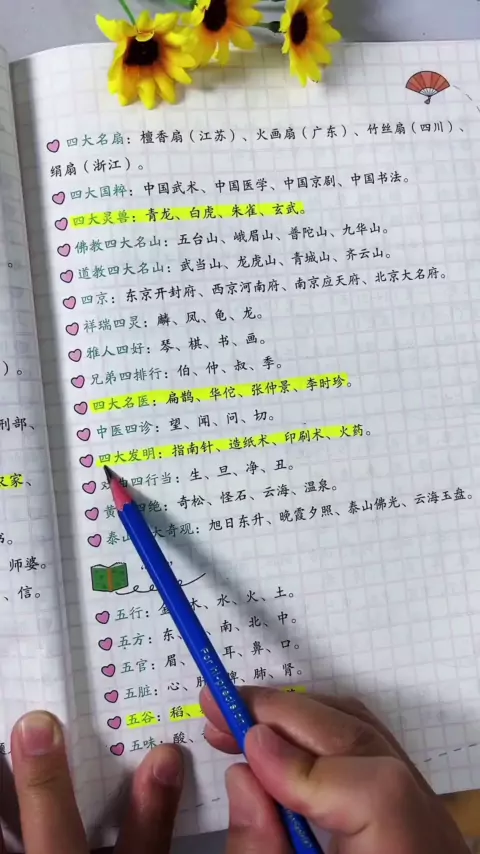 四大名扇：檀香扇（江苏）、火画扇（广东）、竹丝扇（四川）、
绢扇（浙江）。
四大国粹：中国武术、中国医学、中国京剧、中国书法。
四大灵兽：青龙、白虎、朱雀、玄武。
佛教四大名山：五台山、峨眉山、普陀山、九华山。
道教四大名山：武当山、龙虎山、青城山、齐云山。
四京：东京开封府、西京河南府、南京应天府、北京大名府。
祥瑞四灵：麟、凤、龟、龙。
雅人四好：琴、棋、书、画。
兄弟四排行：伯、仲、叔、季。
四大名医：扁鹊、华佗、张仲景、李时珍。
中医四诊：望、闻、问、切。
四大发明：指南针、造纸术、印刷术、火药。
四行当：生、旦、净、丑。
黄 四绝：奇松、怪石、云海、温泉。
泰山 大奇观：旭日东升、晚霞夕照、泰山佛光、云海玉盘。
五行：木、水、火、土。
五方：东、南、北、中。
五官：眉、耳、鼻、口。
五脏：心、脾、肺、肾。
五谷：稻、
五味：酸、
）。
刑部、
家、
书。
师婆。
、信。